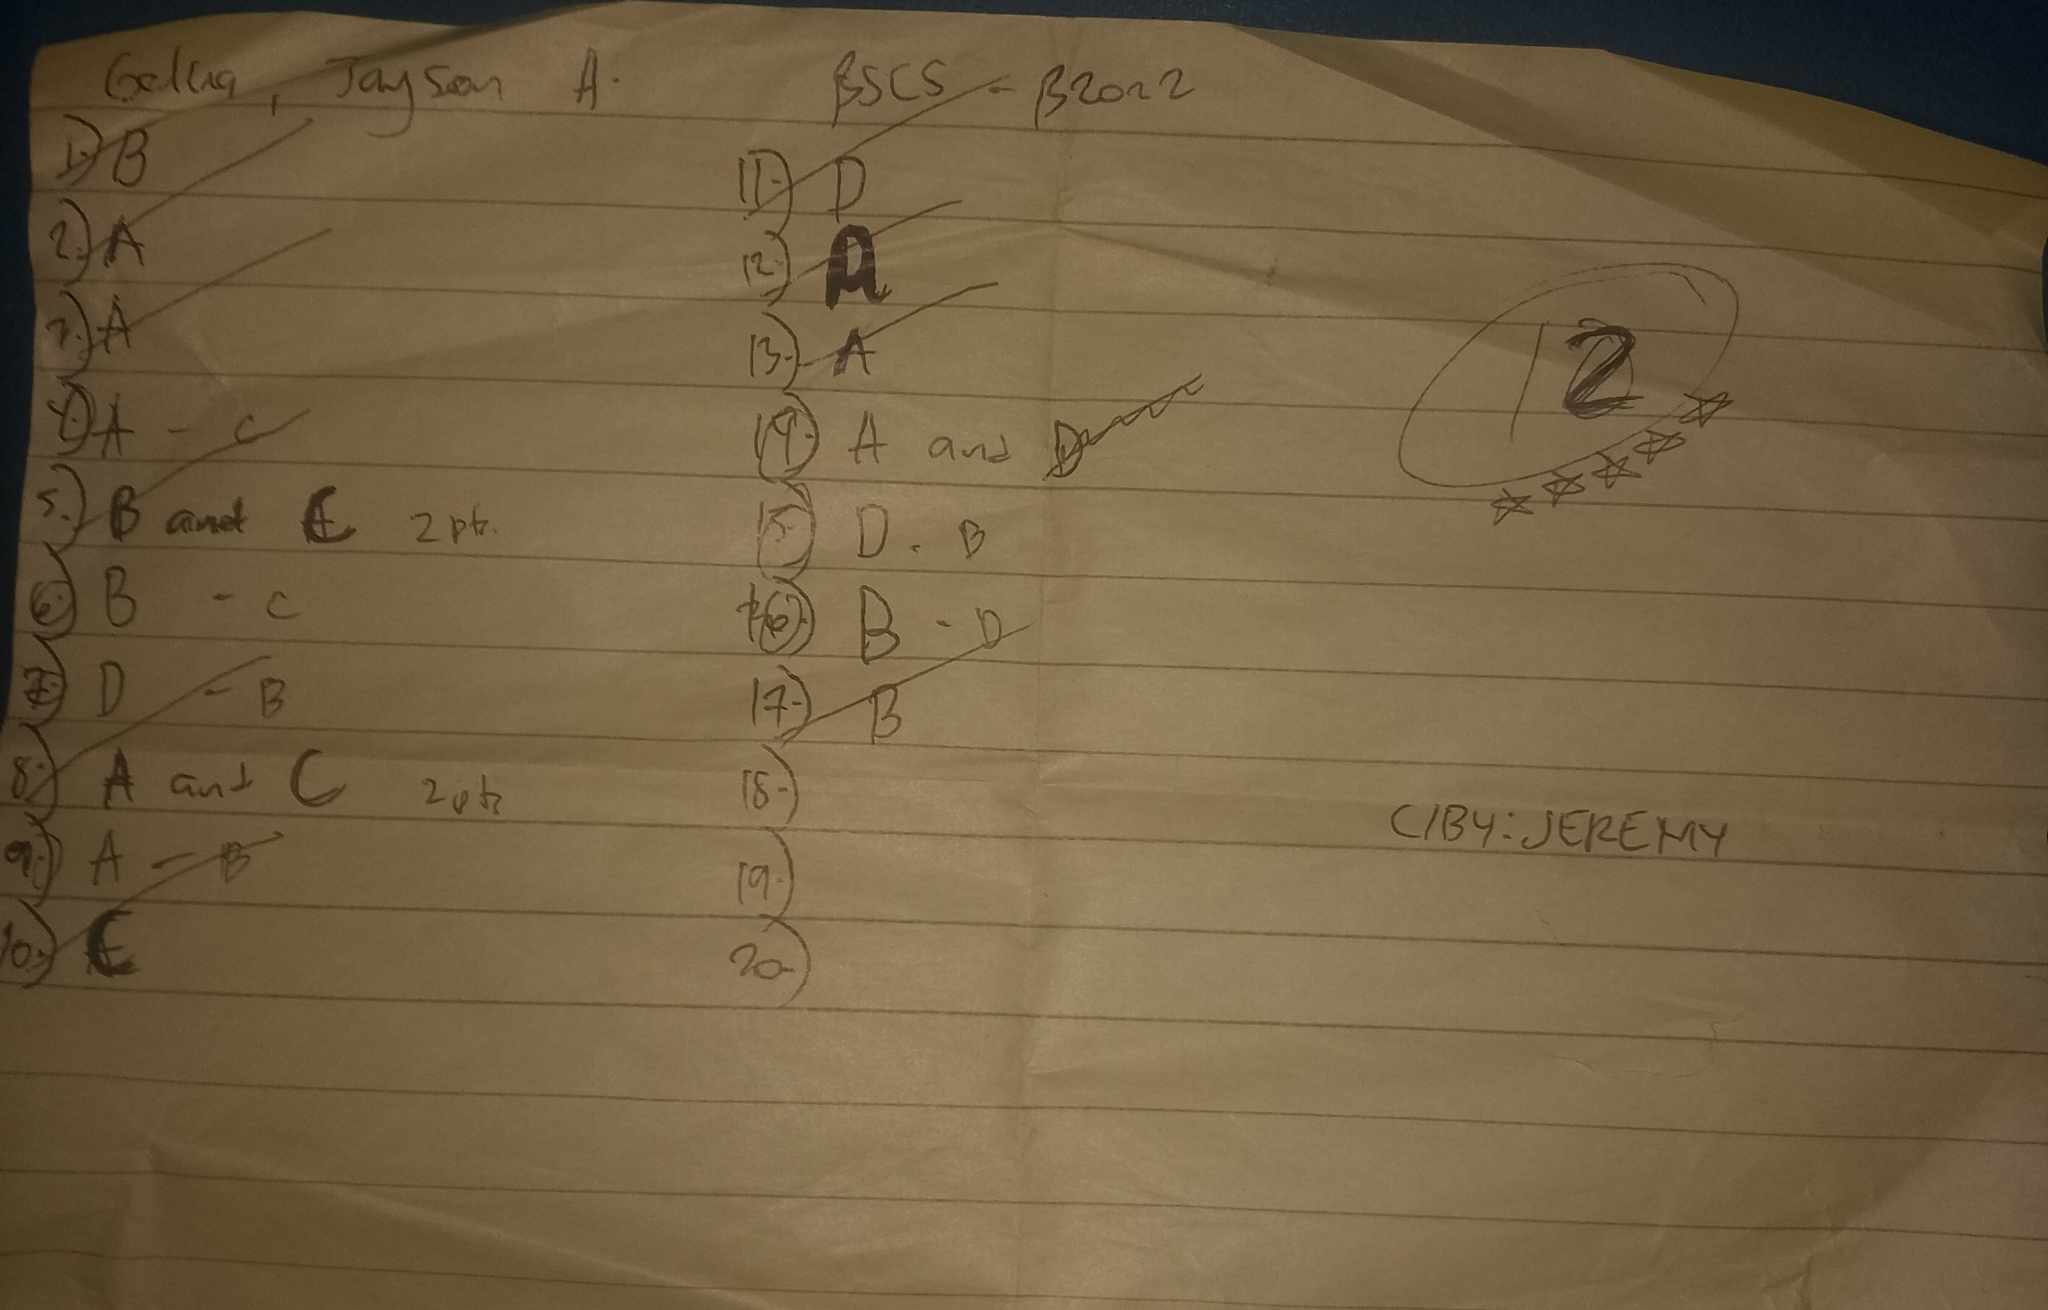 Jayson A.
BSCS - B2022
1.) B
2.) A
3.) A
4.) A - C
5.) B and C 2 pts.
6.) B - C
7.) D - B
8.) A and C 2pts
9.) A - B
10.) C
11.) D
12.) A
13.) A
14.) A and D
15.) D. B
16.) B - D
17.) B
18.)
19.)
20.)
12
C/BY: JEREMY